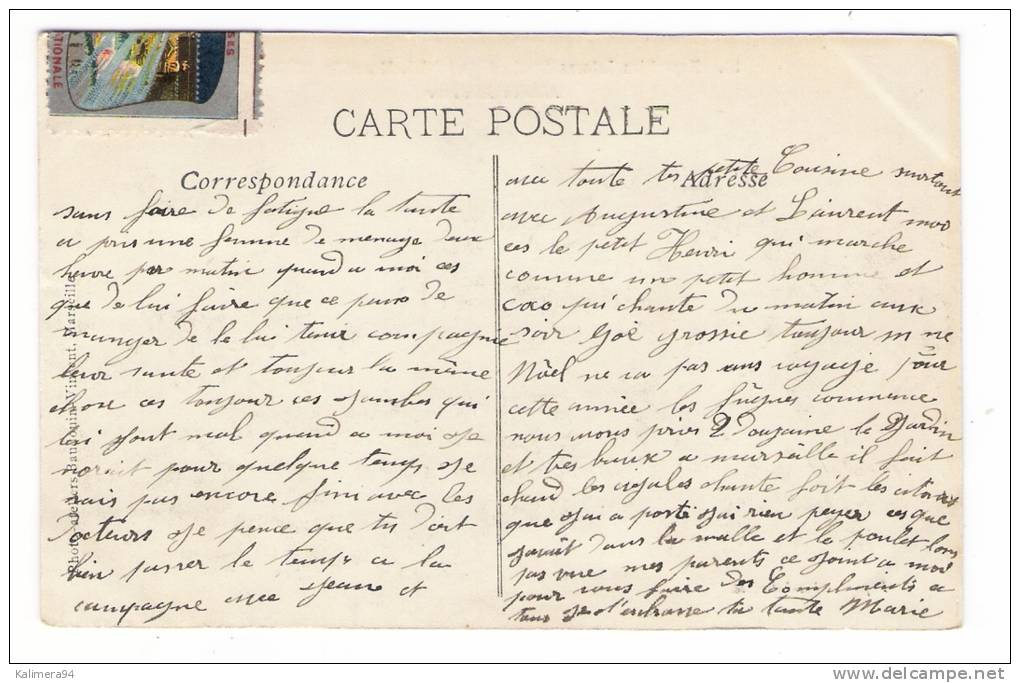 SES
TIONALE
CARTE POSTALE
Correspondance
Adresse
sans faire de fatigue la tante
a pris une femme de menage deux
heure par matin quand a moi ces
que de lui faire que ce peux de
manger de le lui tenir compagnie
leur sante et toujour la même
chose ces toujour ces jambes qui
lui font mal quand a moi je
pour quelque temps je
nais pas encore fini avec les
docteurs je pence que tu doit
bien passer le temps a la
campagne avec Jean et
avec toute tes petite Cousine surtout
avec Augustine et Laurent
ces le petit Henri qui marche
comme un petit homme et
coco qui chante du matin aux
soir Zoé grossie toujour
Nöel ne va pas en voyage pour
cette année les figues commence
nous avons pris 2 douzaine le Jardin
et tres beaux a marseille il fait
chaud les cigales chante
que j'ai a porté j'ai rien payer ces que
dans la malle et le poulet
pas vue mes parents ce joint a moi
pour vous faire des Compliments a
tous je t'enbrasse ta tante Marie
Phototypie Ateliers Baudouin Vincent, Marseille
Kalimera94
www.delcampe.net